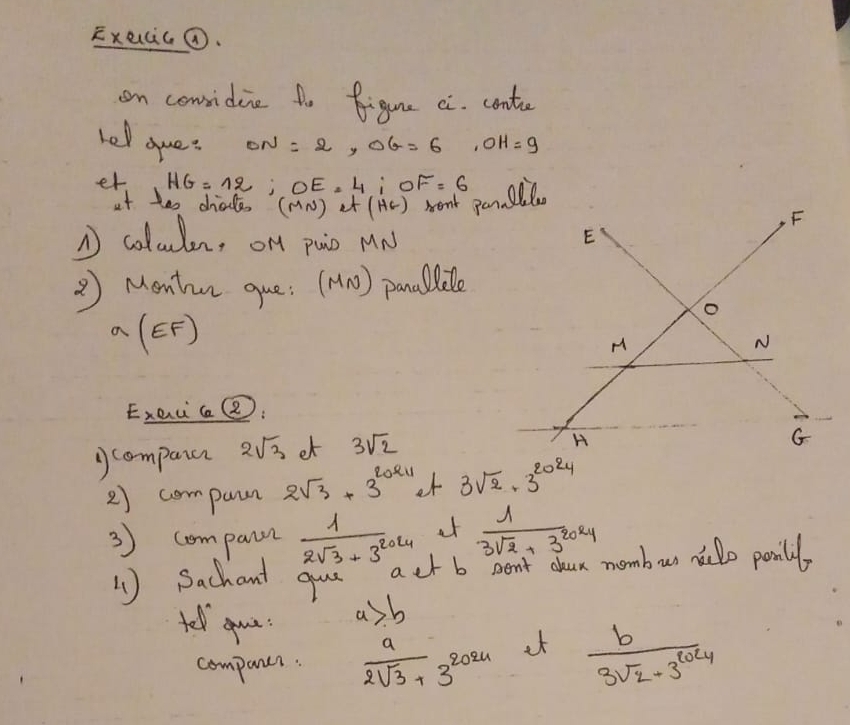 Exercice ①.
on considère la figure ci-contre
tel que: ON = 2 , OG = 6 , OH = 9
et HG = 12 ; OE = 4 ; OF = 6
et les droites (MN) et (HG) sont parallèles
1) Calculer: OM puis MN
2) Montrer que: (MN) parallèle
a (EF)
E
F
O
M
N
H
G
Exercice ②:
1) comparer 2√3 et 3√2
2) comparer 2√3 + 3^2024 et 3√2 + 3^2024
3) comparer 1/(2√3 + 3^2024) et 1/(3√2 + 3^2024)
4) Sachant que a et b sont deux nombres réels positifs
tel que: a > b
comparer: a/(2√3 + 3^2024) et b/(3√2 + 3^2024)